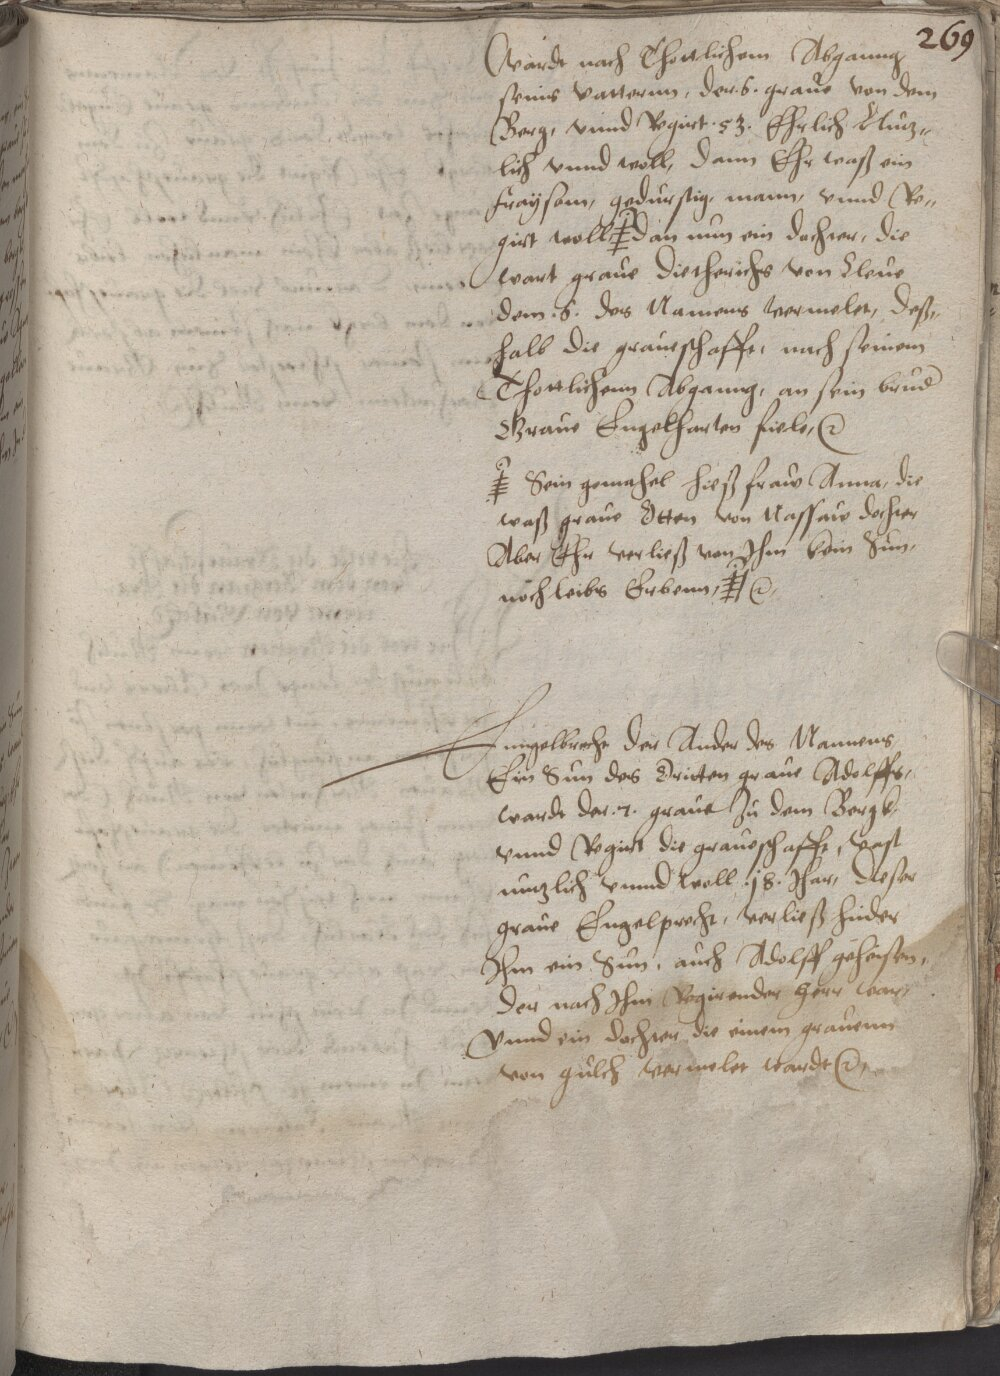 269
Wardt nach Thottlichem Abganng
seins vatterun, der .6. graue von dem
Berg, vnnd Regirt .53. Ehrlich Nuz„
lich vnnd woll, dann Ehr waß ein
fraysam, gedurstig, mann, vnnd Re„
girt woll dan nun ein dochter, die
wart graue Dietherichs von Cleue
dem .6. des Namens vermelet, deß„
halb die graueschafft, nach seinem
Thottlichenn Abganng, an sein brud
Graue Engelharten fiele,
Sein gemahel hieß fraw Anna, die
waß graue Otten von Nassaw dochter
Aber Ehr verließ von Ihm kein Sun,
noch leibs Erbenn,
Enngelbrecht der Ander des Namens
Ein Sun des Dritten graue Adolffs,
wardt der .7. graue Zu dem Bergk,
vnnd Regirt die graueschafft, vast
nuzlich vnnd woll .18. Ihar, dieser
graue Engelprecht, verließ hinder
Ihm ein Sun, auch Adolff geheisen,
der nach Ihm Regirender Herr war,
Vnnd ein dochter die einem grauenn
von gulch vermelet wardt